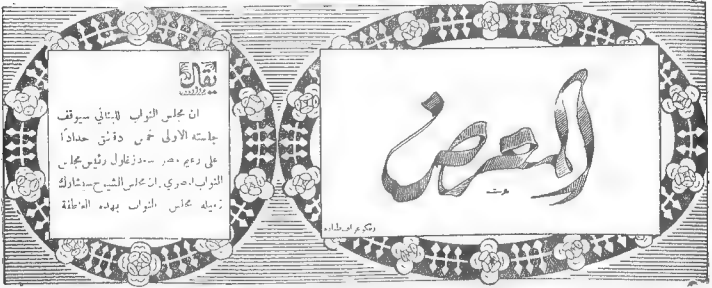 المعرض
يقال
ان مجلس النواب اللبناني سيوقف
جلسته الاولى خمس دقائق حداداً
على زعيم مصر سعد زغلول رئيس مجلس
النواب المصري. ان مجلس الشيوخ سيشارك
زميله مجلس النواب بهذه العاطفة